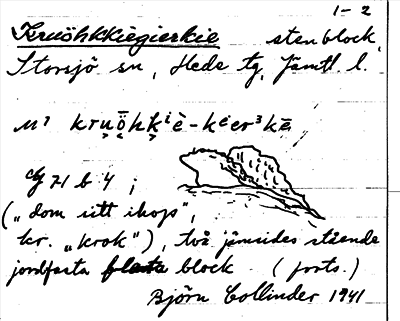 1-2
Kruöhkkiegierkie stenblock
Storsjö sn, Hede tg, Jämtl l.
71 b 4 ;
("dom sitt ihop",
kr. "krok"), två jämsides stående
jordfasta block (forts.)
Björn Collinder 1941